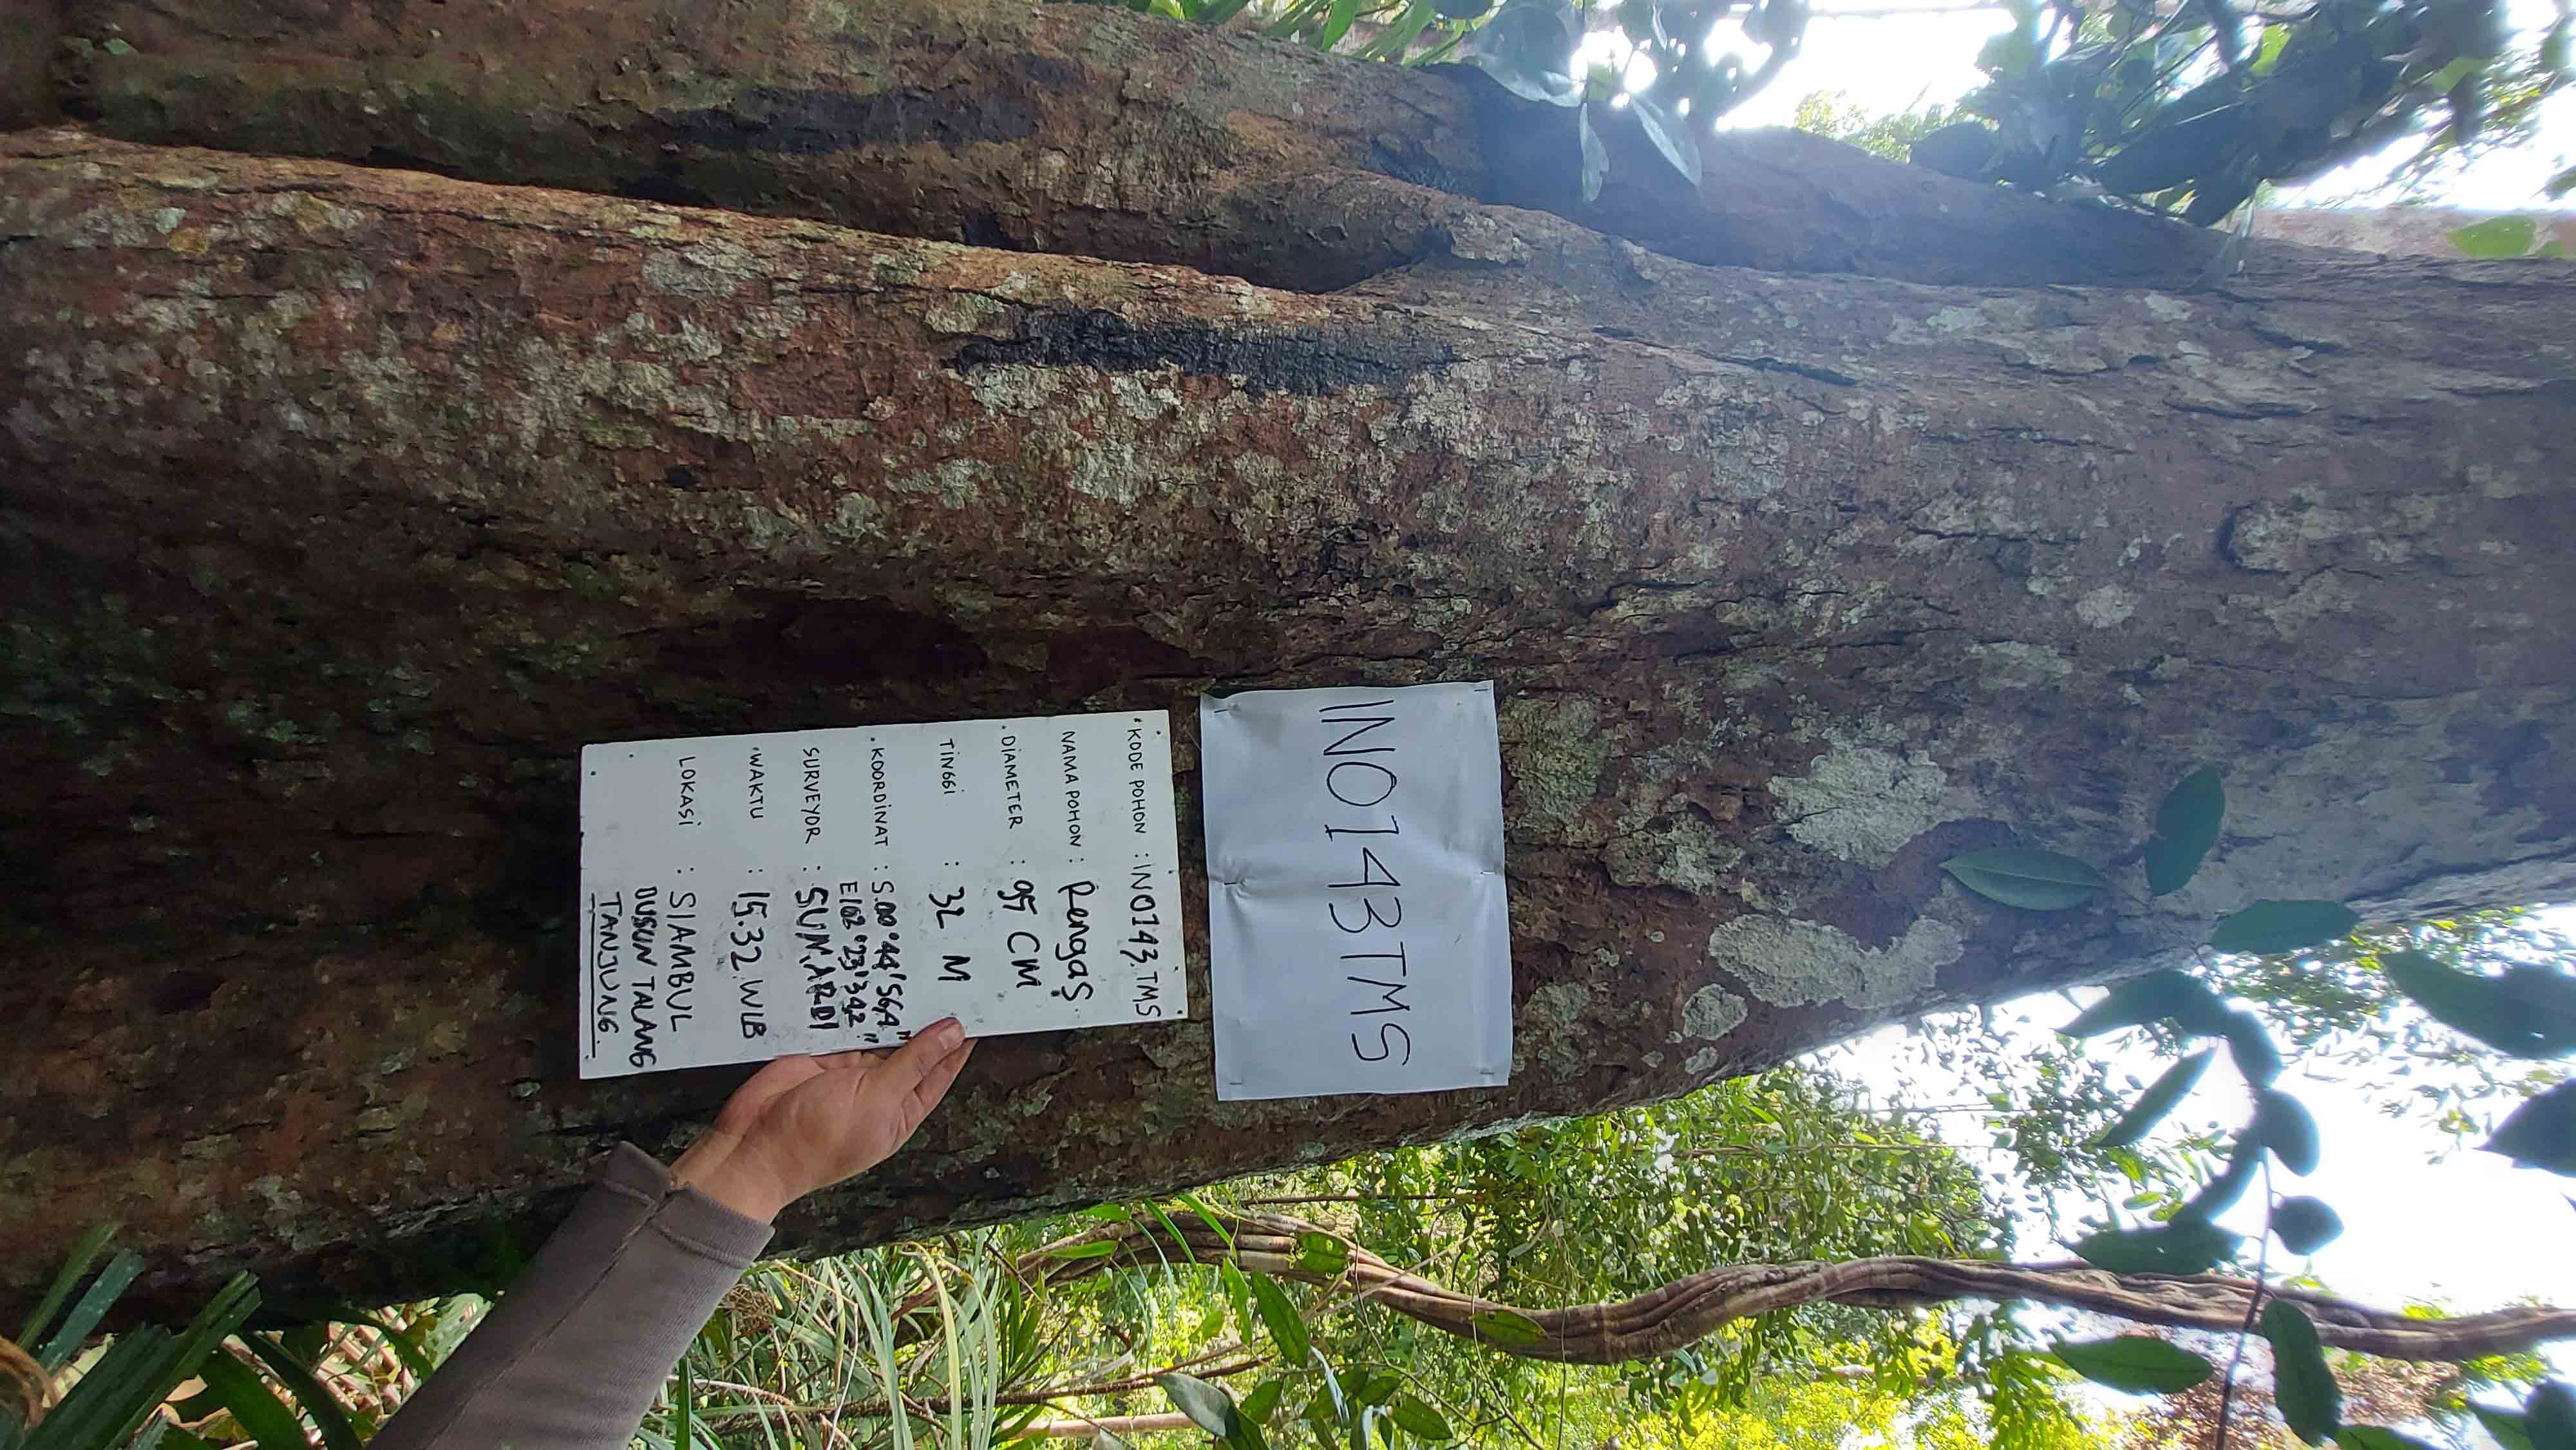 INO143TMS
KODE POHON : INO143.TMS
NAMA POHON : Rengas
DIAMETER : 95 CM
TINGGI : 32 M
KOORDINAT : S.00°44'56,4"
E102°23'34,2"
SURVEYOR : SUNARDI
WAKTU : 15.32 WIB
LOKASI : SIAMBUL
DUSUN TALANG
TANJUNG.